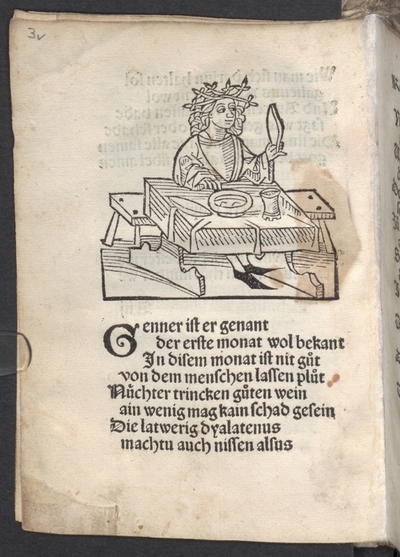 3v
Genner ist er genant
der erste monat wol bekant
In disem monat ist nit gůt
von dem menschen lassen plůt
Nůchter trincken gůten wein
ain wenig mag kain schad gesein
Die latwerig dyalatenus
machtu auch nissen alsus